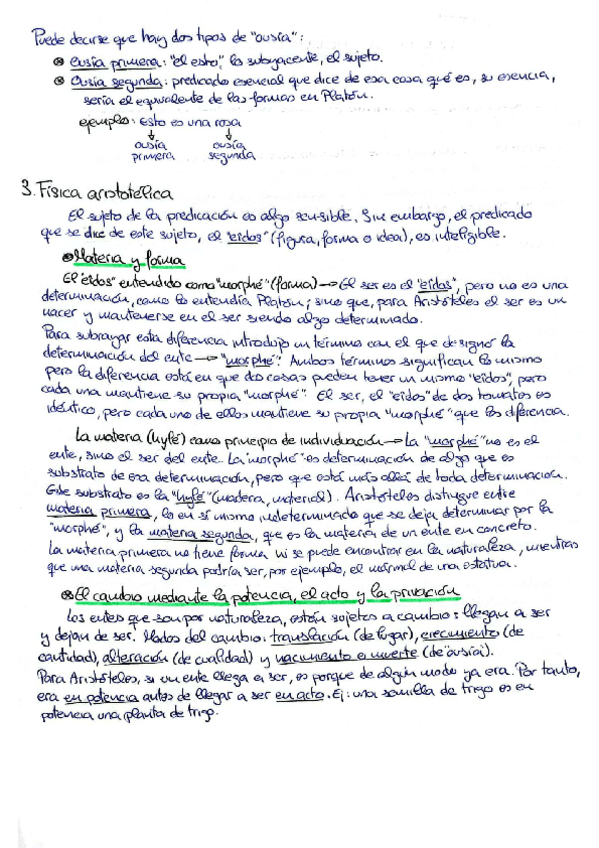 Puede decirse que hay dos tipos de "ousía":
⊛ Ousía primera: "el esto", lo subyacente, el sujeto.
⊛ Ousía segunda: predicado esencial que dice de esa cosa qué es, su esencia,
sería el equivalente de las formas en Platón.
ejemplo: Esto es una rosa
↓ ↓
ousía ousía
primera segunda
3. Física aristotélica
El sujeto de la predicación es algo sensible. Sin embargo, el predicado
que se dice de este sujeto, el "eidos" (figura, forma o idea), es inteligible.
⊛ Materia y forma
El "eidos" entendido como "morphé" (forma) → El ser es el "eidos", pero no es una
determinación, como lo entendía Platón; sino que, para Aristóteles el ser es un
nacer y mantenerse en el ser siendo algo determinado.
Para subrayar esta diferencia introdujo un término con el que designó la
determinación del ente → "morphé". Ambos términos significan lo mismo
pero la diferencia está en que dos cosas pueden tener un mismo "eidos", pero
cada una mantiene su propia "morphé". El ser, el "eidos" de dos tomates es
idéntico, pero cada uno de ellos mantiene su propia "morphé" que los diferencia.
La materia (hylé) como principio de individuación → La "morphé" no es el
ente, sino el ser del ente. La "morphé" es determinación de algo que es
substrato de esa determinación, pero que está más allá de toda determinación.
Este substrato es la "hylé" (madera, material). Aristóteles distingue entre
materia primera, lo en sí mismo indeterminado que se deja determinar por la
"morphé", y la materia segunda, que es la materia de un ente en concreto.
La materia primera no tiene forma ni se puede encontrar en la naturaleza, mientras
que una materia segunda podría ser, por ejemplo, el mármol de una estatua.
⊛ El cambio mediante la potencia, el acto y la privación
Los entes que son por naturaleza, están sujetos a cambio: llegan a ser
y dejan de ser. Modos del cambio: translación (de lugar), crecimiento (de
cantidad), alteración (de cualidad) y nacimiento o muerte (de "ousía").
Para Aristóteles, si un ente llega a ser, es porque de algún modo ya era. Por tanto,
era en potencia antes de llegar a ser en acto. Ej: una semilla de trigo es en
potencia una planta de trigo.